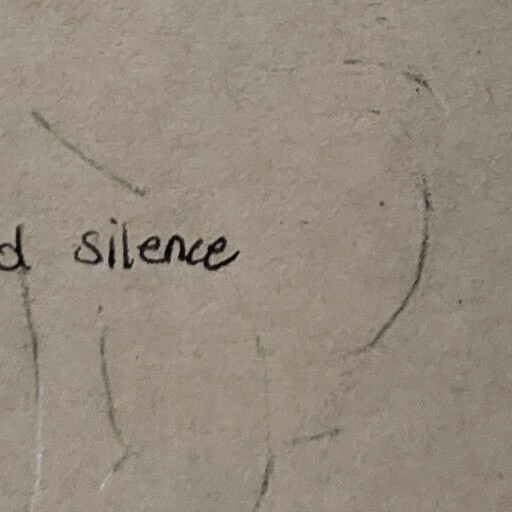 d silence